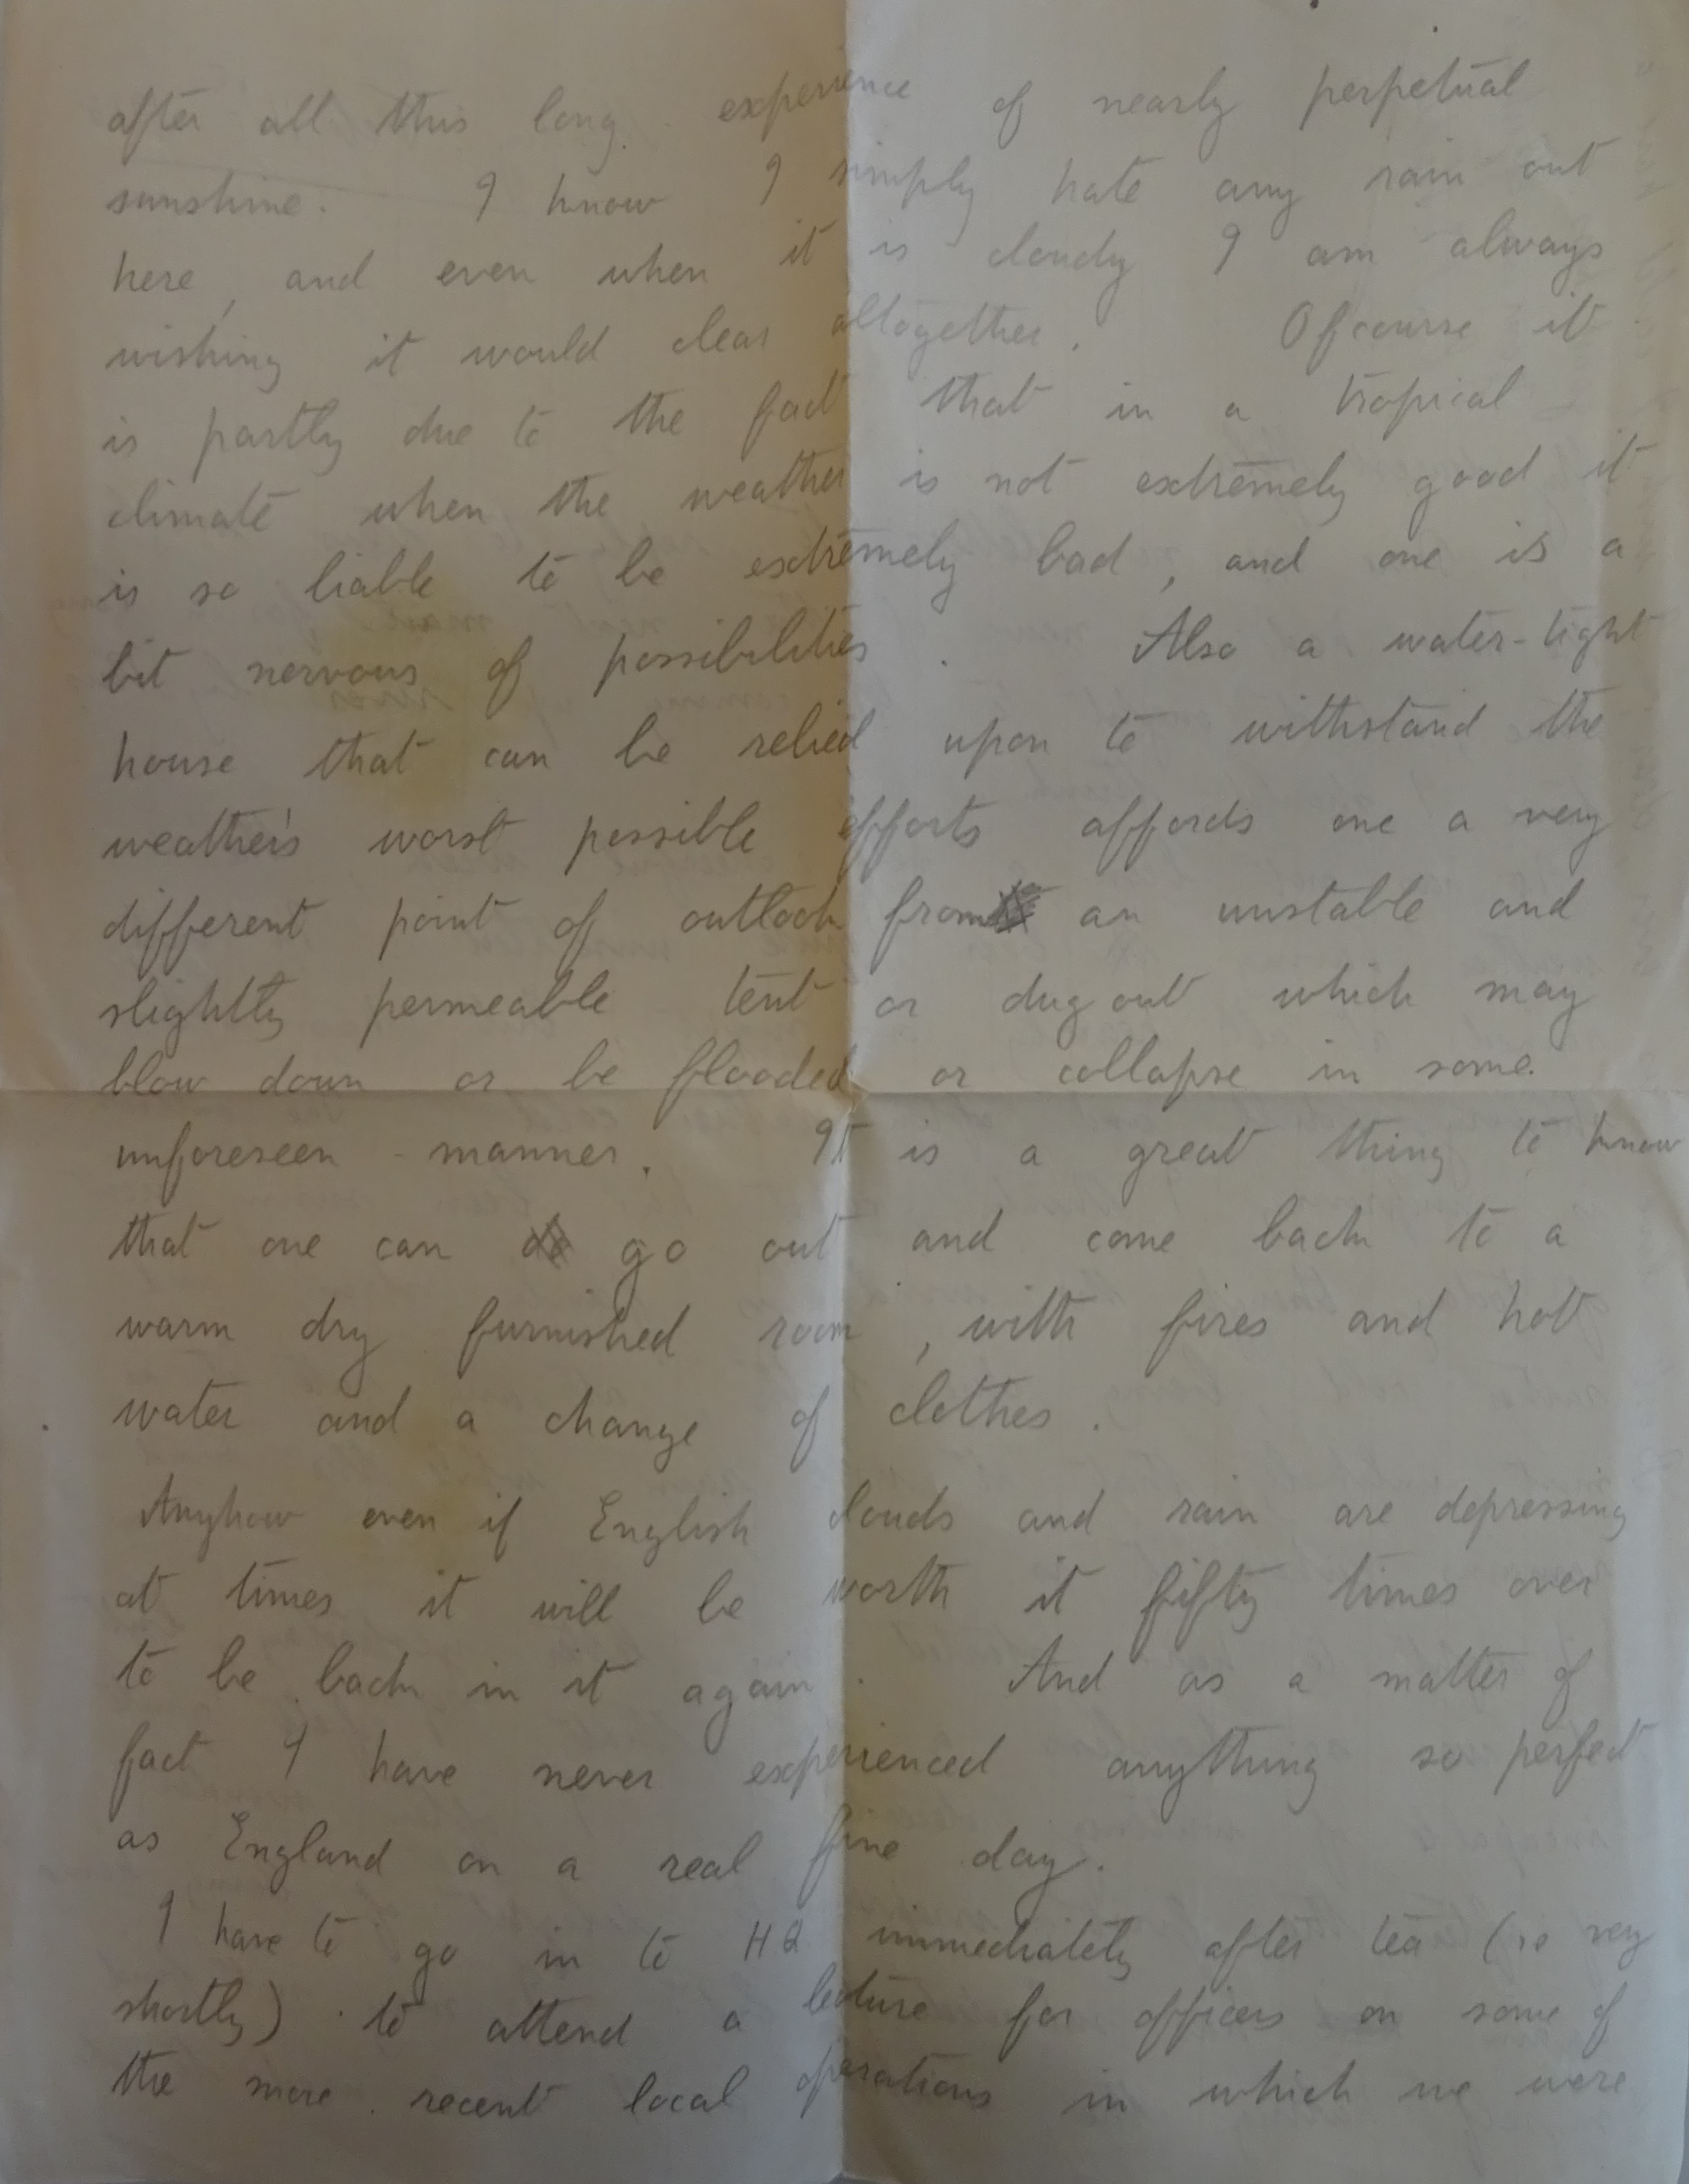 after all this long experience of nearly perpetual
sunshine. I know I simply hate any rain out
here, and even when it is cloudy I am always
wishing it would clear altogether. Ofcourse it
is partly due to the fact that in a tropical
climate when the weather is not extremely good it
is so liable to be extremely bad, and one is a
bit nervous of possibilities. Also a water-tight
house that can be relied upon to withstand the
weather's worst possible efforts affords one a very
different point of outlook from an unstable and
slightly permeable tent or dug out which may
blow down or be flooded or collapse in some
unforeseen manner. It is a great thing to know
that one can go out and come back to a
warm dry furnished room, with fires and hot
water and a change of clothes.
Anyhow even if English clouds and rain are depressing
at times it will be worth it fifty times over
to be back in it again. And as a matter of
fact I have never experienced anything so perfect
as England on a real fine day.
I have to go in to HQ immediately after tea (ie very
shortly) to attend a lecture for officers on some of
the more recent local operations in which we were